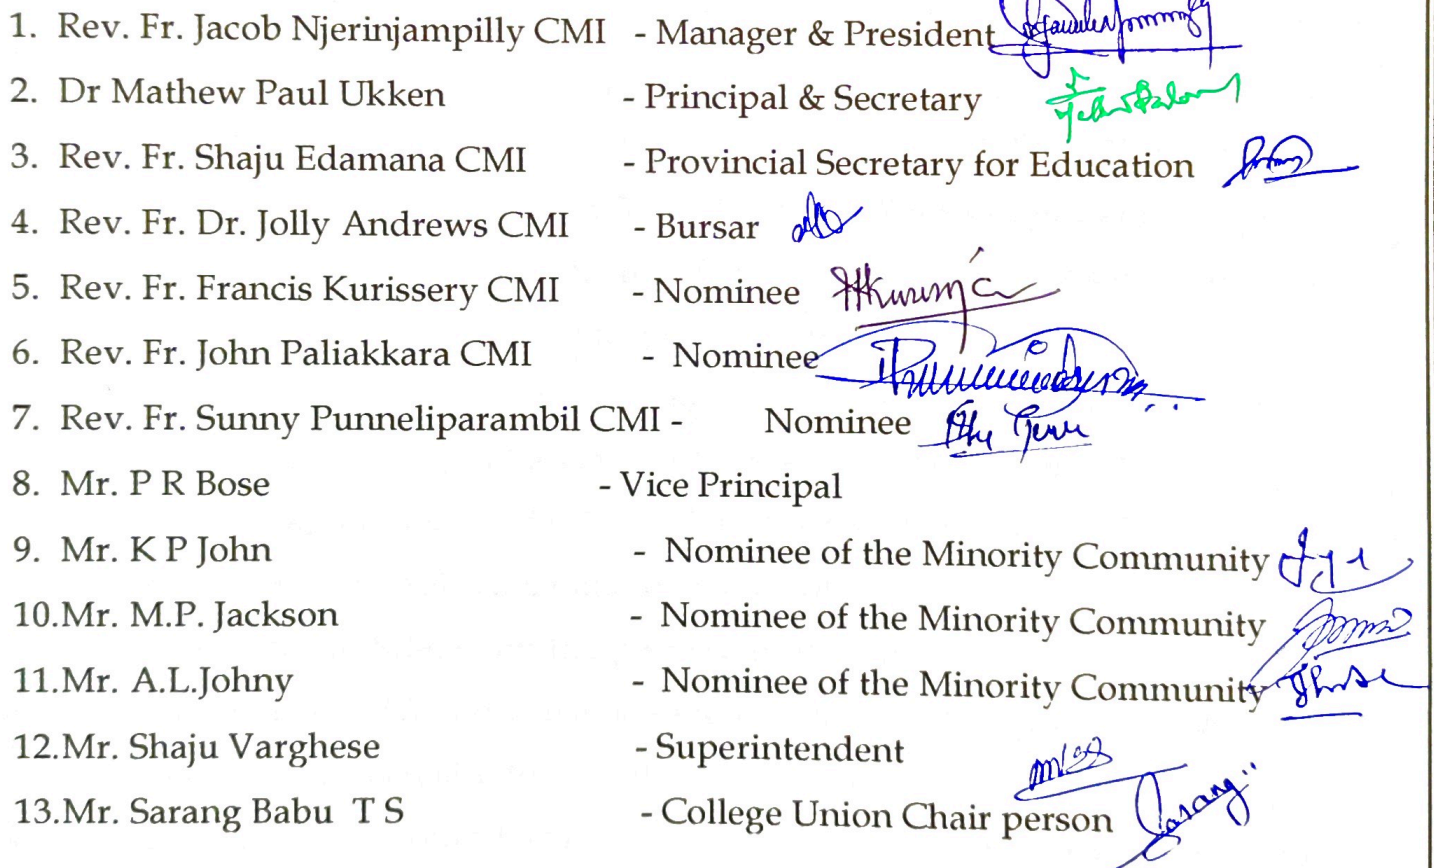 1. Rev. Fr. Jacob Njerinjampilly CMI - Manager & President
2. Dr Mathew Paul Ukken - Principal & Secretary
3. Rev. Fr. Shaju Edamana CMI - Provincial Secretary for Education
4. Rev. Fr. Dr. Jolly Andrews CMI - Bursar
5. Rev. Fr. Francis Kurissery CMI - Nominee
6. Rev. Fr. John Paliakkara CMI - Nominee
7. Rev. Fr. Sunny Punneliparambil CMI - Nominee
8. Mr. P R Bose - Vice Principal
9. Mr. K P John - Nominee of the Minority Community
10.Mr. M.P. Jackson - Nominee of the Minority Community
11.Mr. A.L.Johny - Nominee of the Minority Community
12.Mr. Shaju Varghese - Superintendent
13.Mr. Sarang Babu T S - College Union Chair person Sarang